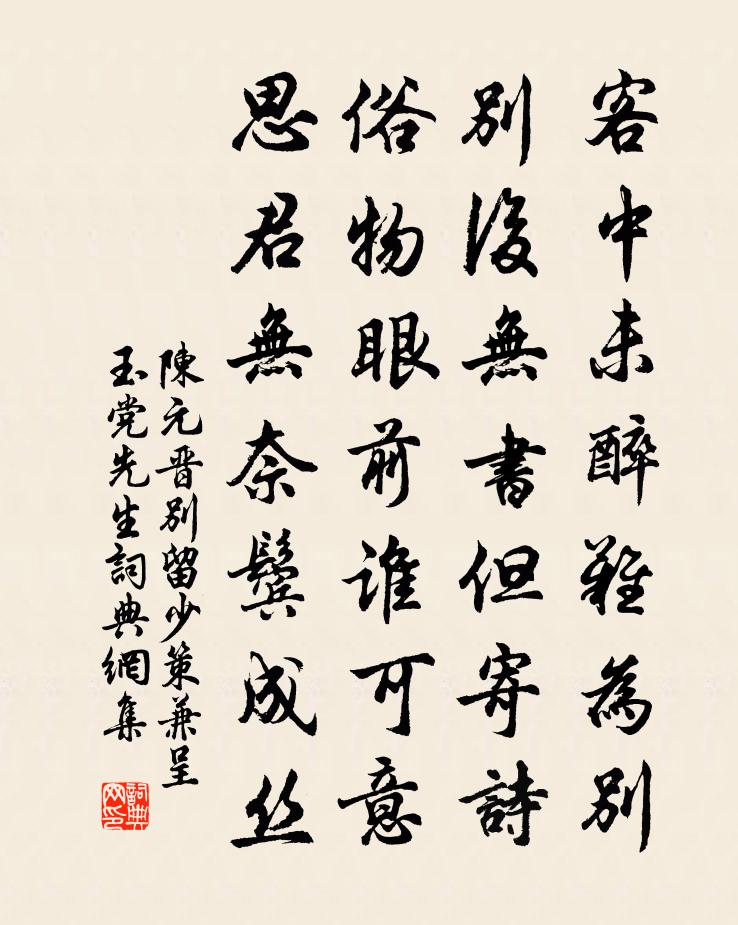 客中未醉難為別
別後無書但寄詩
俗物眼前誰可意
思君無奈鬢成丝
陳元晋別留少策兼呈
玉党先生詞典網集
詞典网印